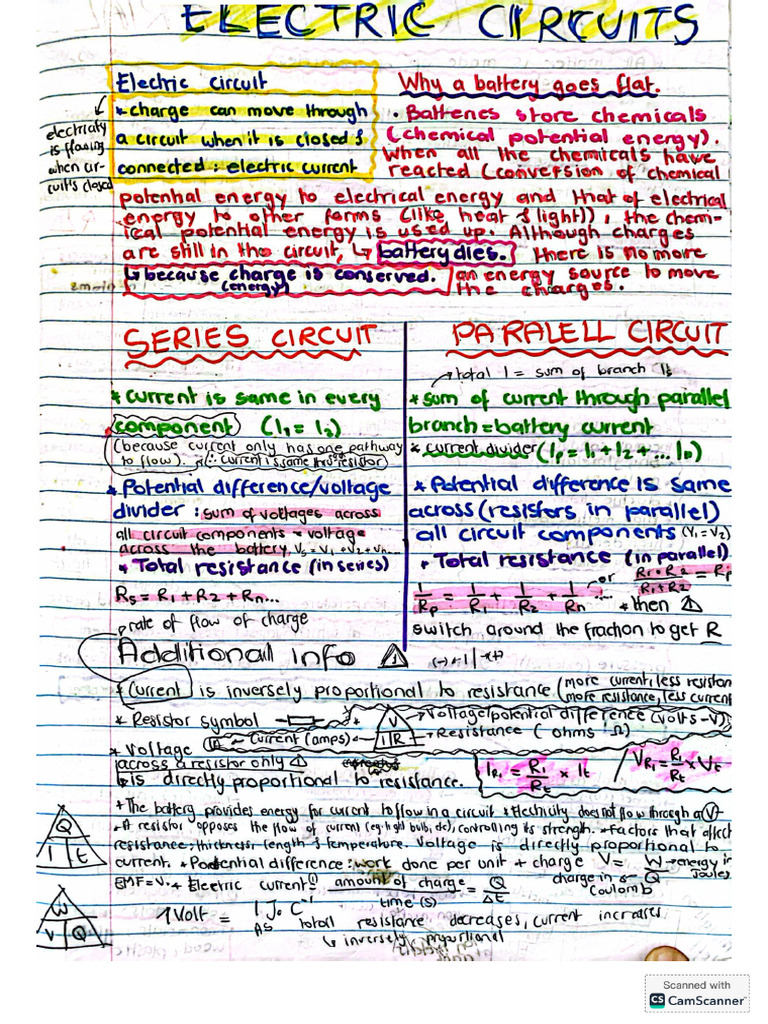 ELECTRIC CIRCUITS
Electric circuit
* charge can move through
a circuit when it is closed &
connected : electric current
electricity
is flowing
when cir-
cuit's closed
Why a battery goes flat.
• Batteries store chemicals
(chemical potential energy).
When all the chemicals have
reacted (conversion of chemical
potential energy to electrical energy and that of electrical
energy to other forms (like heat & light)), the chem-
ical potential energy is used up. Although charges
are still in the circuit, ↳ battery dies. There is no more
↳ because charge is conserved. an energy source to move
(energy) the charges.
SERIES CIRCUIT
* current is same in every
component (I₁ = I₂)
(because current only has one pathway
to flow). ∴ current is same thru resistor)
* Potential difference/voltage
divider : sum of voltages across
all circuit components = voltage
across the battery, Vs = V₁ + V₂ + Vn...
* Total resistance (in series)
Rs = R₁ + R₂ + Rn...
PARALELL CIRCUIT
→ total I = sum of branch Is
* sum of current through parallel
branch = battery current
* current divider (Ip = I₁ + I₂ + ... In)
* Potential difference is same
across (resistors in parallel)
all circuit components (V₁ = V₂)
* Total resistance (in parallel)
1/Rp = 1/R₁ + 1/R₂ + 1/Rn ... or R₁ • R₂ / R₁ + R₂ = Rp
* then ⚠
switch around the fraction to get R
rate of flow of charge
Additional info ⚠ (-) ⊣| (+)
* Current is inversely proportional to resistance (more current, less resistan
more resistance, less current
* Resistor symbol
V
I R
→ Voltage/potential difference (volts - V)
Current (amps) ← → Resistance (ohms Ω)
* Voltage
across a resistor only ⚠
↳ is directly proportional to resistance.
I R₁ = R₁/Rt × It / V R₁ = R₁/Rt × Vt
* The battery provides energy for current to flow in a circuit * Electricity does not flow through a V
* A resistor opposes the flow of current (eg: light bulb, etc), controlling its strength. * Factors that affect
resistance : thickness, length & temperature. Voltage is directly proportional to
current. * Potential difference : work done per unit + charge V = W/Q → energy in Joules
charge in Coulomb
EMF = V. * Electric current (I) = amount of charge / time (s) = Q/Δt
1 Volt = 1 J. C⁻¹
As total resistance decreases, current increases
↳ inversely proportional
Q
I t
W
V Q
Scanned with
CS CamScanner